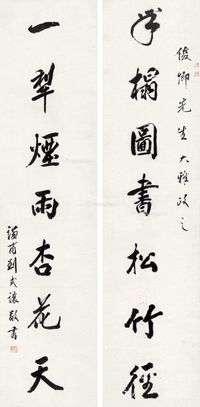 俊卿先生大雅政之
半榻圖書松竹徑
一犂煙雨杏花天
甫劉式讓敬書